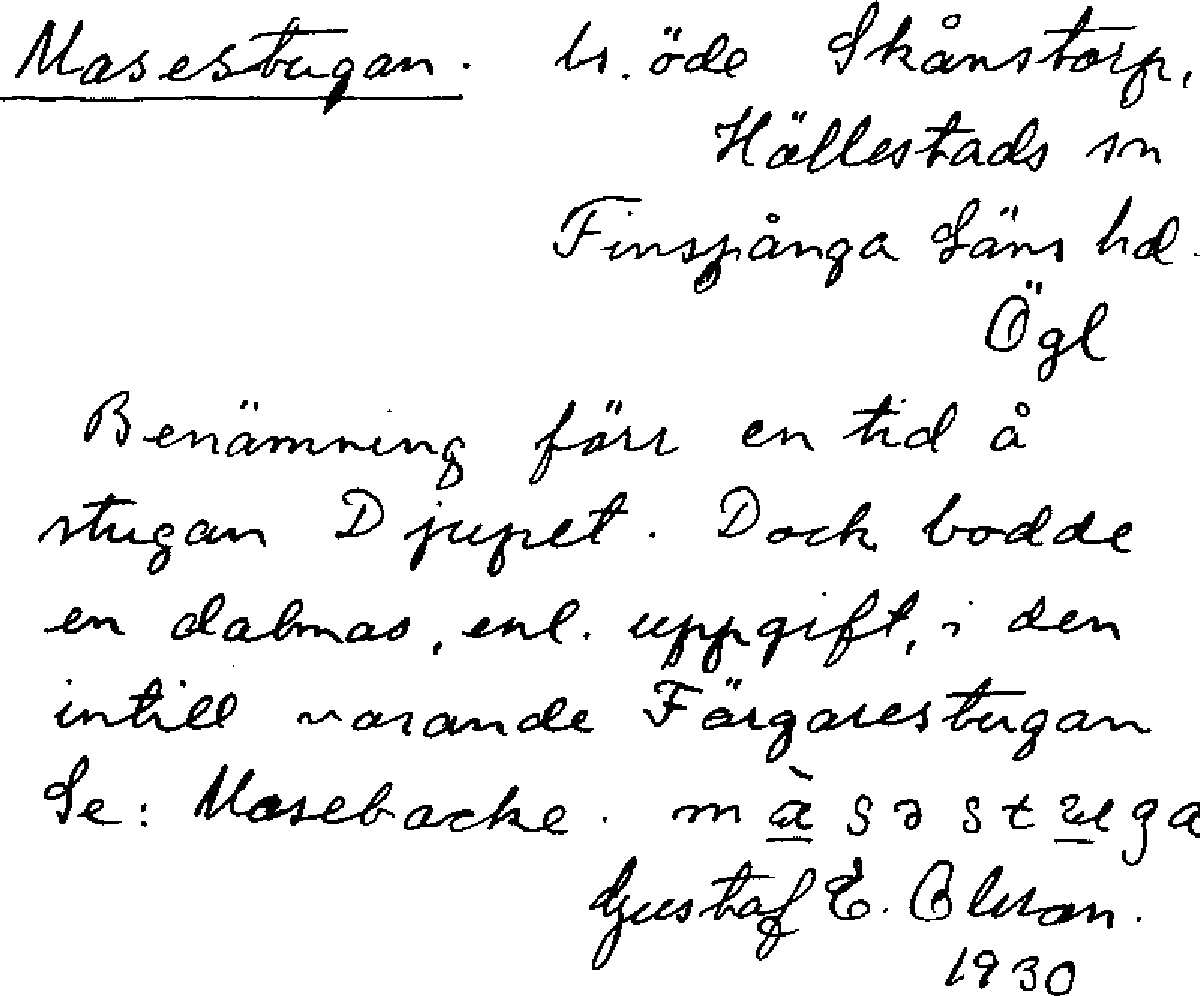 Masestugan. ls. öde Skånstorp,
Hällestads sn
Finspånga Läns hd.
Ögl
Benämning förr en tid å
stugan Djupet. Dock bodde
en dalmas, enl. uppgift, i den
intill varande Färgarestugan
Se: Masebacke. màsəstuga
Gustaf E. Olsson.
1930